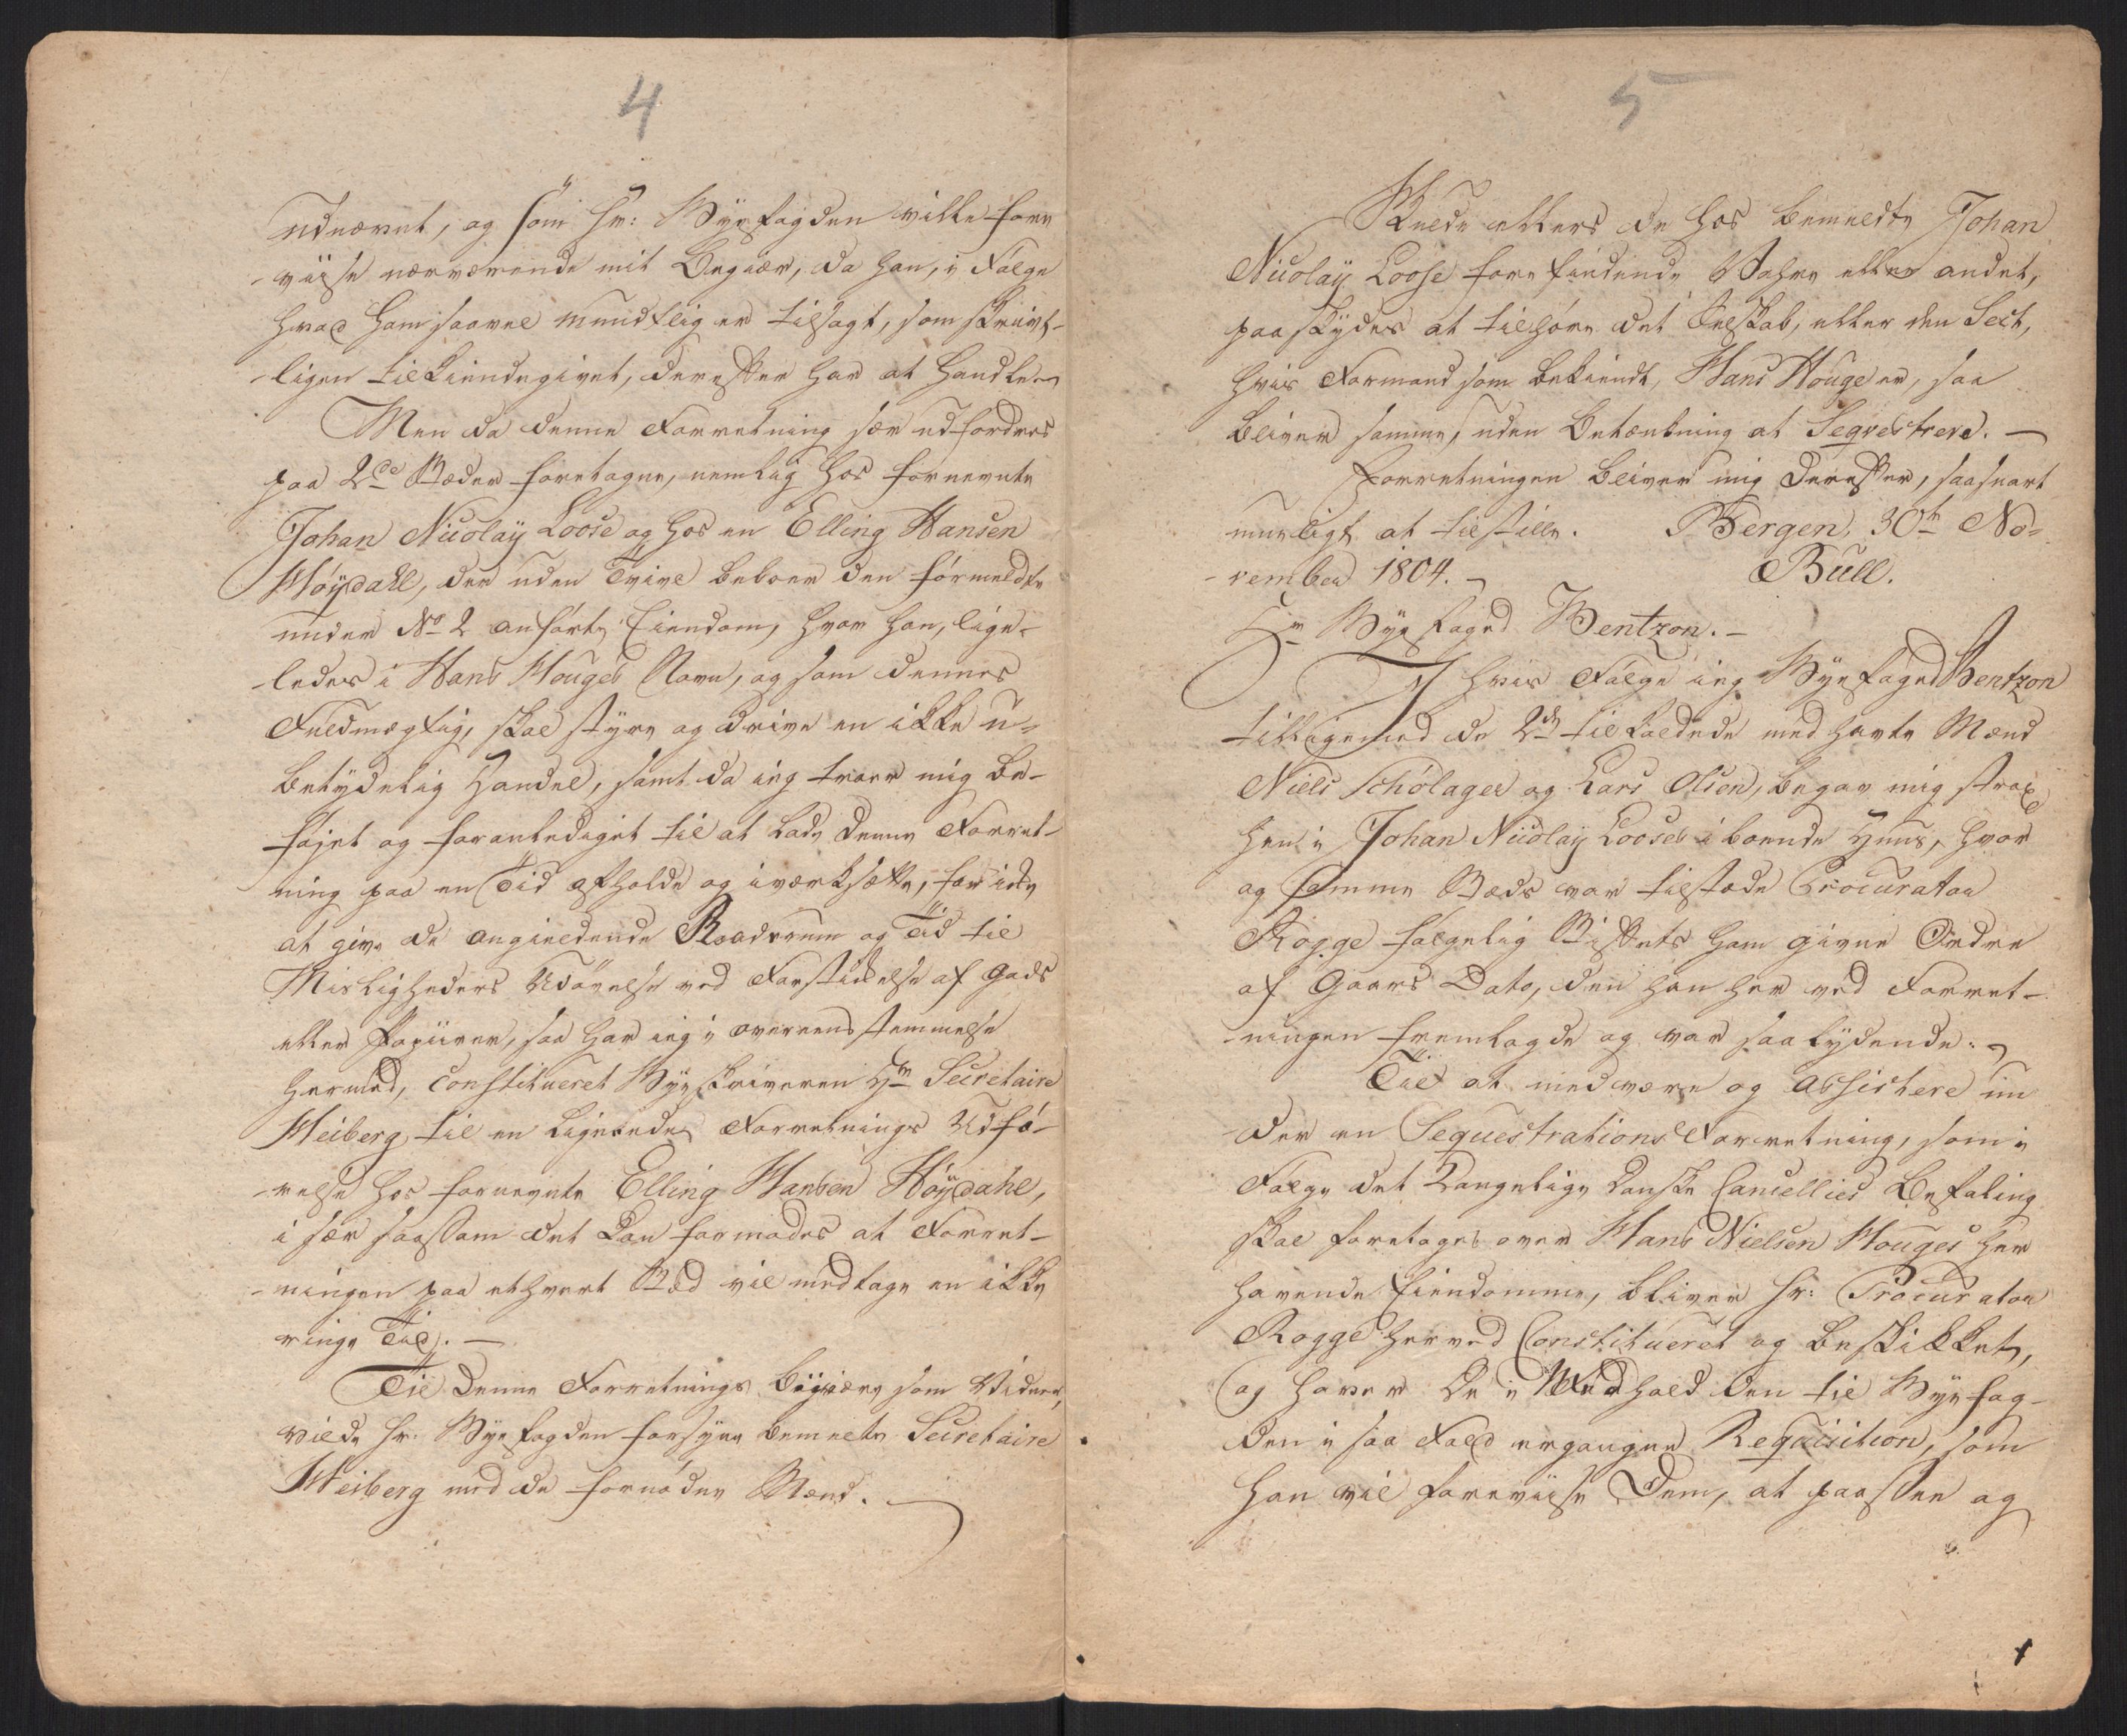 4
udnævnt, og som Hr: Byefogden ville fore
-viise nærværende mit Begiær, da han, i Følge
hvad ham saavel mundtlig er tilsagt, som skrivt-
-ligen tilkiendegivet, derefter har at handle.
Men da denne Forretning især udfordres
paa 2de Stæder foretagne, nemlig hos fornevnte
Johan Nicolaÿ Loose og hos en Elling Hansen
Høÿdahl, der uden Tvivl beboer den formeldte
under No 2 anførte Eiendom, hvor han, lige-
-ledes i Hans Houges Navn, og som dennes
Fuldmægtig, skal styre og drive en ikke u-
betydelig Handel, samt da ieg troer mig be-
føjet og foranlediget til at lade denne Forret-
ning paa en Tid afholde og iværksætte, for ikke
at give de angieldende Raaderum og Tid til
Misligheders Udøvelse ved Forstikkelse af Gods
eller Papiirer, saa har ieg i overeensstemmelse
hermed, Constitueret Byeskriveren Hr Secretaire
Heiberg til en ligesaadan Forretnings Udfø-
-relse hos fornevnte Elling Hansen Høÿdahl,
i sær saasom det kan formodes at Forret-
-ningen paa ethvert Stæd vil medtage en ikke
ringe Tid. —
Til denne Forretnings bógiæring som Vidner,
vilde Hr. Byefogden forsyne bemeldte Secretaire
Heiberg med de fornødne Mænd.
5
Skulde ellers de hos bemeldte Johan
Nicolaÿ Loose forefindende Vahre eller andet,
paaskydes at tilhøre det Selskab, eller den Sect,
hvis Formand som bekiendt, Hans Houge er, saa
bliver samme, uden Betænkning at Seqvestrere. —
Forretningen bliver mig derefter, saasnart
mueligt at tilstille. Bergen, 30te No-
-vember 1804. Bull.
Hr Byefoged Bentzon. —
I hvis Følge ieg Byefoged Bentzon
tilligemed de 2de tilkaldede medhavte Mænd
Niels Schølager og Lars Olsen, begav mig strax
hen i Johan Nicolaÿ Looses iboende Huus, hvor
og samme Stæds var tilstæde Procurator
Rogge følgelig Stiftets ham givne Ordre
af Gaars Dato, den han her ved Forret-
-ningen fremlagde og var saalydende:
Til at medvære og assistere un
-der en Sequestrations Forretning, som i
Følge det Kongelige Danske Cancellies Befaling
skal foretages over Hans Nielsen Houges her
havende Eiendomme, bliver Hr: Procurator
Rogge herved Constitueret og beskikket,
og haver De i Medhold den til Byefog-
den i saa Fald ergangne Requisition, som
han vil foreviise Dem, at paasee og